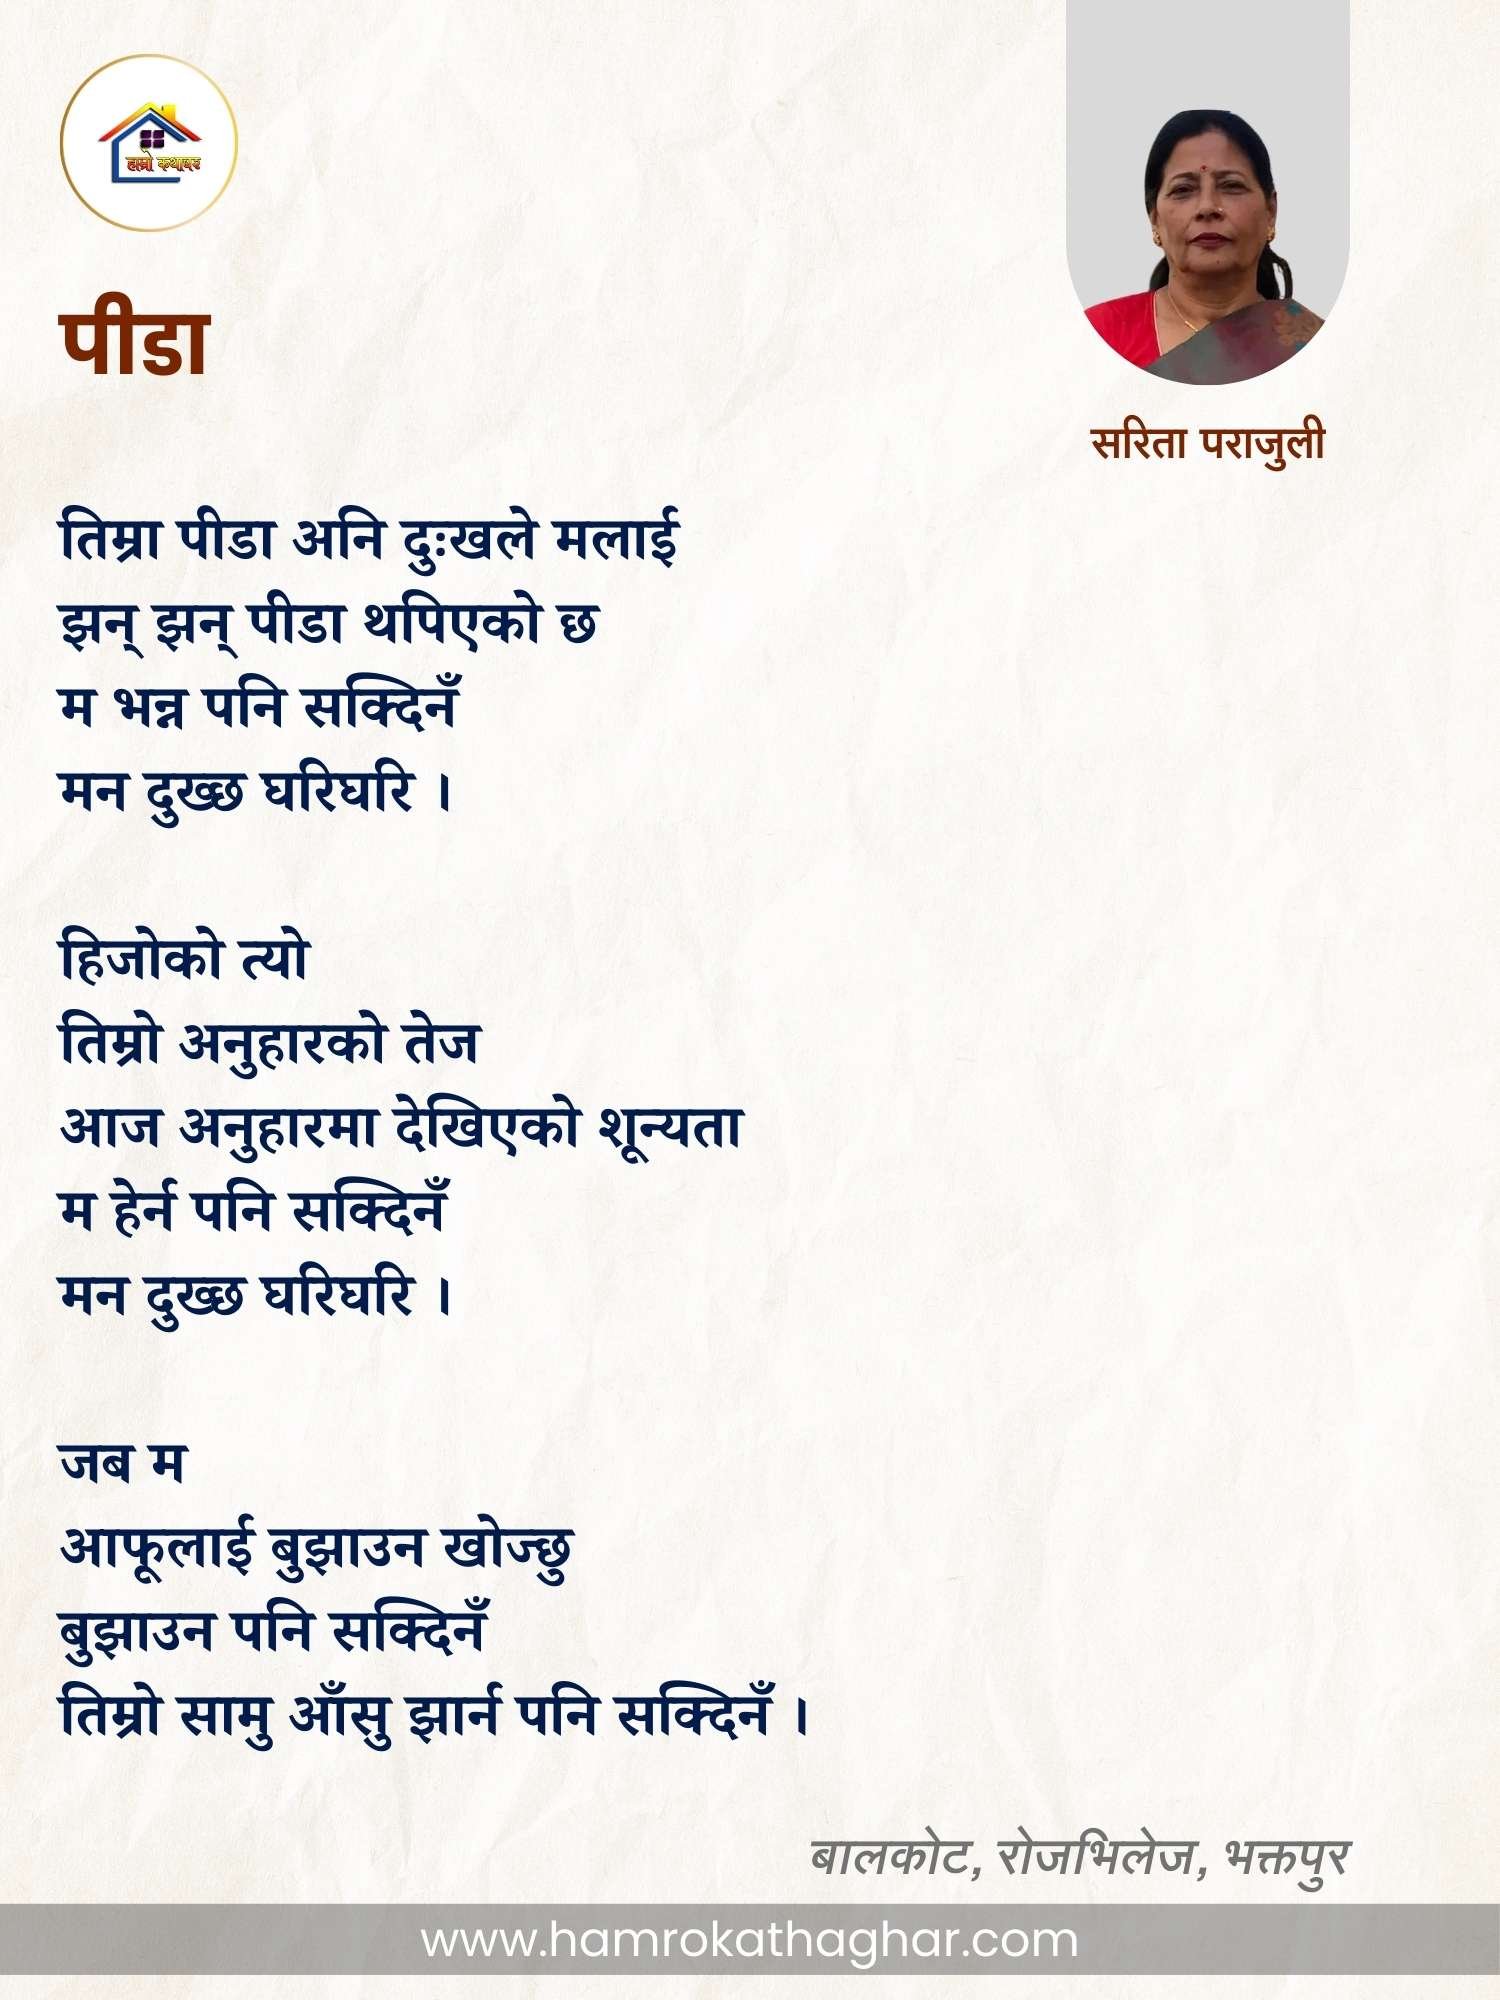 हाम्रो कथाघर
पीडा
सरिता पराजुली
तिम्रा पीडा अनि दुःखले मलाई
झन् झन् पीडा थपिएको छ
म भन्न पनि सक्दिनँ
मन दुख्छ घरिघरि ।
हिजोको त्यो
तिम्रो अनुहारको तेज
आज अनुहारमा देखिएको शून्यता
म हेर्न पनि सक्दिनँ
मन दुख्छ घरिघरि ।
जब म
आफूलाई बुझाउन खोज्छु
बुझाउन पनि सक्दिनँ
तिम्रो सामु आँसु झार्न पनि सक्दिनँ ।
बालकोट, रोजभिलेज, भक्तपुर
www.hamrokathaghar.com